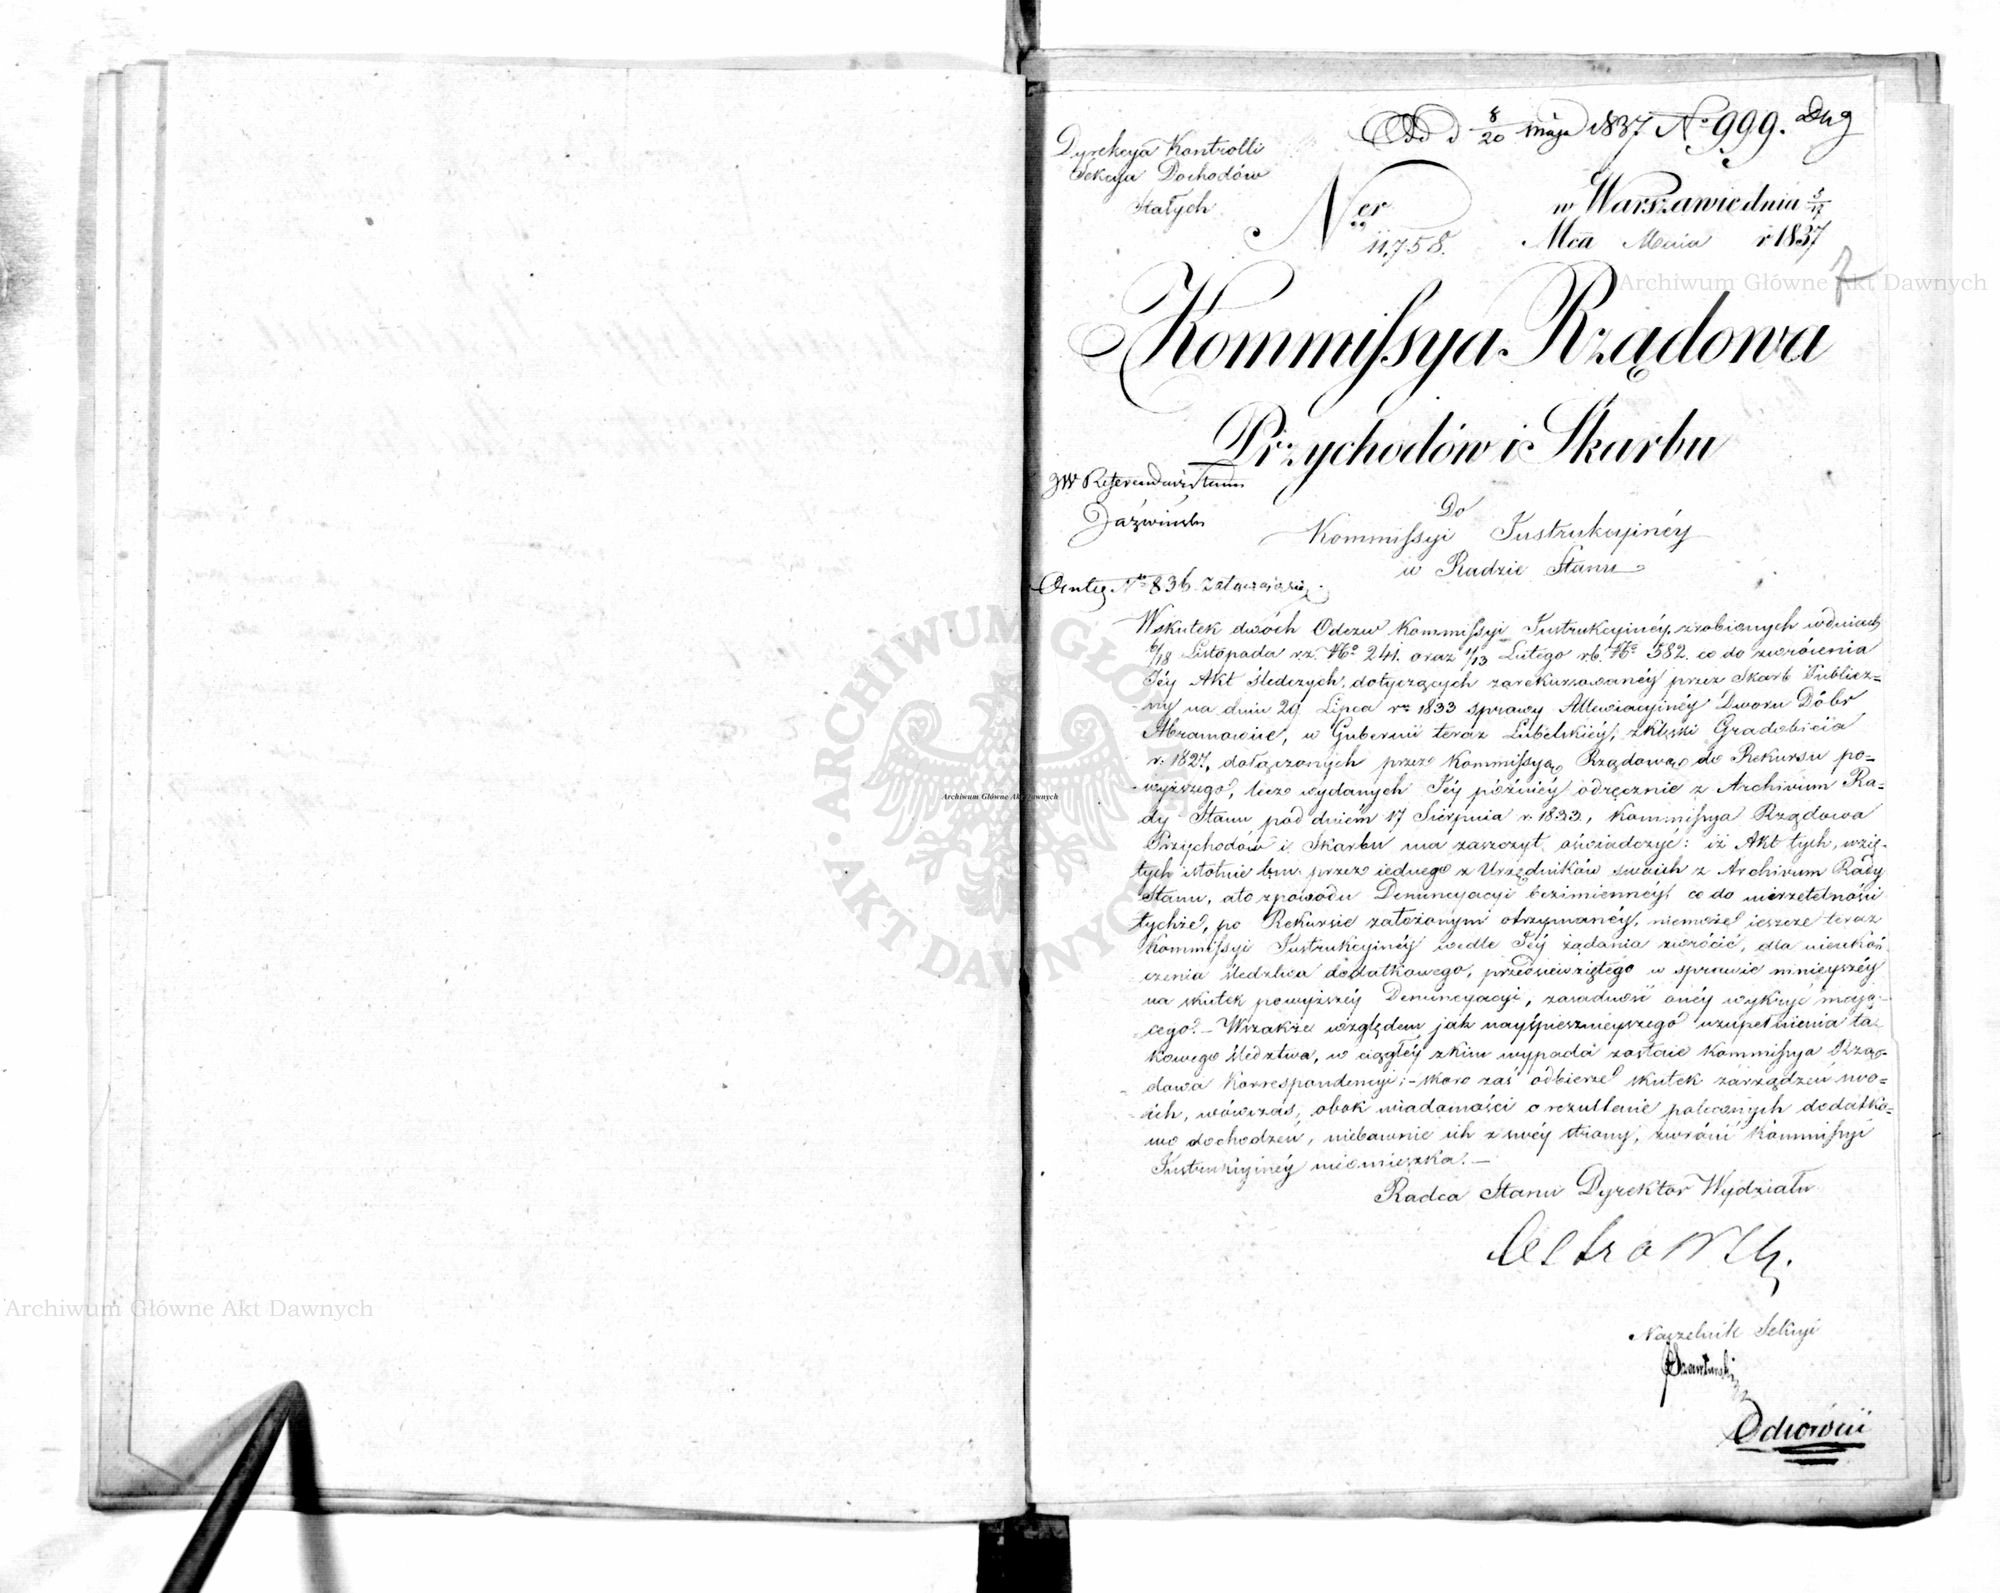 Od d 8/20 maja 1837 No 999.
Dyrekcya Kontrolli
Sekcya Dochodów
Stałych
Ner
11,758.
w Warszawie dnia 5/17
Mca Maia r 1837
7
Kommissya Rządowa
Przychodów i Skarbu
JW Referendarz Stanu
Do
Kommissyi Instrukcyinéy
w Radzie Stanu
No 836
Wskutek dwóch Odezw Kommissyi Instrukcyinéy, zrobionych w dniach
6/18 Listopada r.z. No 241. oraz 1/13 Lutego r.b. No 582. co do zwrócenia
Jéy Akt śledczych, dotyczących zarekursowanéy przez Skarb Publicz=
ny na dniu 29 Lipca r. 1833 sprawy Allewiacyinéy Dworu Dóbr
Abramowice, w Gubernii teraz Lubelskiéy, z klęski Gradobicia
r. 1827, dołączonych przez Kommissyą Rządową do Rekursu po=
wyższego, lecz wydanych Jéy późniéy odręcznie z Archivum Ra=
dy Stanu pod dniem 17 Sierpnia r. 1833, Kommissya Rządowa
Przychodów i Skarbu ma zaszczyt oświadczyć: iż Akt tych, wzię-
tych istotnie przez iednego z Urzędników swoich z Archivum Rady
Stanu, a to z powodu Denuncyacyi bezimiennéy, co do nierzetelności
tychże, po Rekursie założonym otrzymanéy, niemoże ieszcze teraz
Kommissyi Instrukcyinéy wedle Jéy żądania zwrócić, dla nieukoń-
czenia śledztwa dodatkowego, przedsięwziętego w sprawie ninieyszéy
na skutek powyższéy Denuncyacyi, zasadność onéy wykryć mają-
cego. – Wszakże względem jak nayśpiesznieyszego uzupełnienia ta=
kowego śledztwa, w ciągłéy z kim wypada zostaie Kommissya Rzą=
dowa Korrespondencyi; – skoro zaś odbierze skutek zarządzeń swo=
ich, wówczas, obok wiadomości o rezultacie poleconych dodatko=
wo dochodzeń, niebawnie ich z swéy strony, zwrócić Kommissyi
Instrukcyinéy nieomieszka. –
Radca Stanu Dyrektor Wydziału
Naczelnik Sekcyi
Archiwum Główne Akt Dawnych
Archiwum Główne Akt Dawnych
Archiwum Główne Akt Dawnych
ARCHIWUM GŁÓWNE AKT DAWNYCH